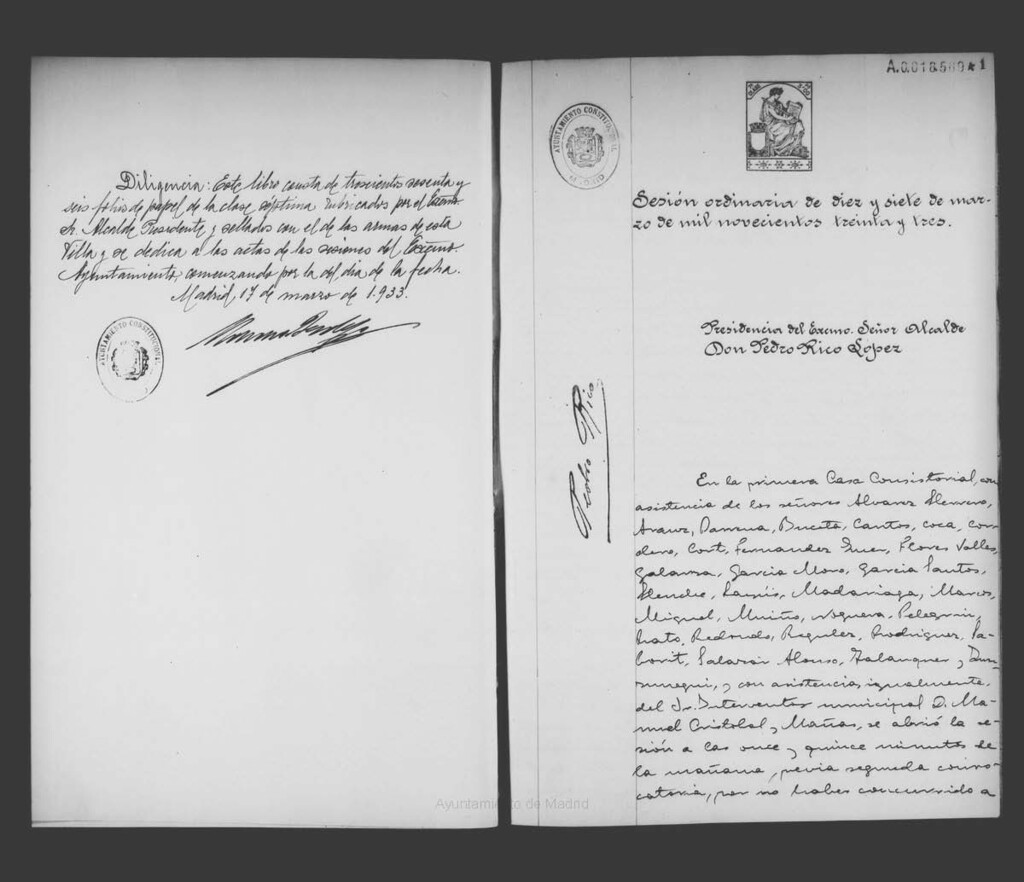 Diligencia: Este libro consta de trescientos sesenta y
seis folios de papel de la clase séptima rubricados por el Excmo
Sr. Alcalde Presidente y sellados con el de las armas de esta
Villa y se dedica a las actas de las sesiones del Excmo.
Ayuntamiento, comenzando por la del dia de la fecha.
Madrid, 17 de marzo de 1.933.
AYUNTAMIENTO CONSTITUCIONAL
A.0.018.509 * 1
AYUNTAMIENTO CONSTITUCIONAL
MADRID
Sesión ordinaria de diez y siete de mar-
zo de mil novecientos treinta y tres.
Presidencia del Excmo. Señor Alcalde
Don Pedro Rico López
Pedro Rico
En la primera Casa Consistorial, con
asistencia de los señores Alvarez Herrero,
Arauz, Barrena, Buceta, Cantos, Coca, Cor-
dero, Cort, Fernandez Quer, Flores Valles,
Galarza, Garcia Moro, Garcia Santos,
Henche, Layús, Madariaga, Marcos,
Miguel, Muiño, Noguera, Pelegrin,
Redondo, Regulez, Rodriguez, Sa-
borit, Salazar Alonso, Talanquer y Zun-
zunegui, y con asistencia, igualmente,
del Sr. Interventor municipal D. Ma-
nuel Cristobal y Mañas, se abrió la se-
sión a las once y quince minutos de
la mañana, previa segunda convo-
catoria, por no haber concurrido a
Ayuntamiento de Madrid